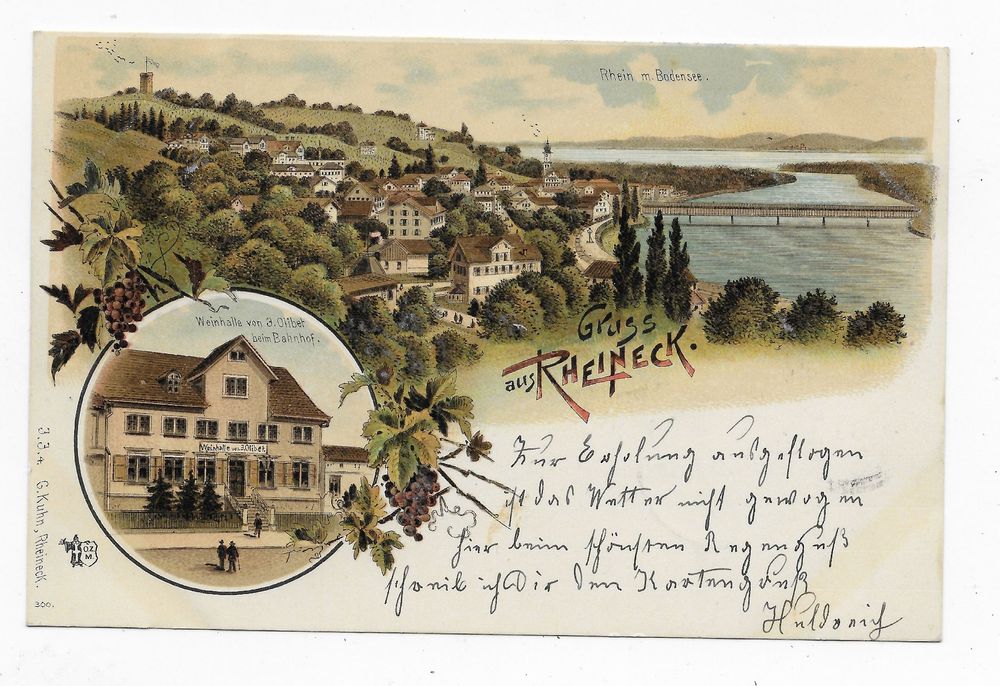 Rhein m. Bodensee.
Weinhalle von J. Olibet
beim Bahnhof.
Weinhalle von J. Olibet
Gruss
aus RHEINECK.
Zur Erholung ausgeflogen
ist das Wetter nicht gewogen
hier beim schönsten Regenguß
schreib ich Dir den Kartengruß
Huldreich
G. Kuhn, Rheineck.
300.
OZ
M.